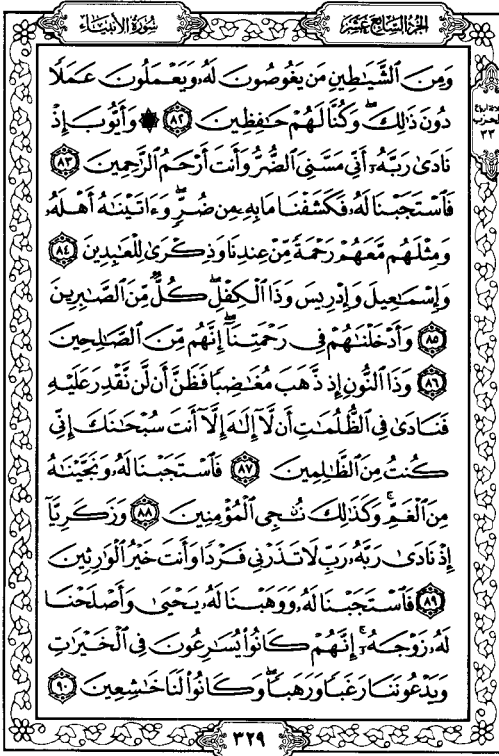 سُورَةُ الأَنبِيَاءِ
الجُزءُ السَّابِعَ عَشَرَ
وَمِنَ ٱلشَّيَٰطِينِ مَن يَغُوصُونَ لَهُۥ وَيَعْمَلُونَ عَمَلًا
دُونَ ذَٰلِكَۖ وَكُنَّا لَهُمْ حَٰفِظِينَ ۝٨٢ ۞ وَأَيُّوبَ إِذْ
نَادَىٰ رَبَّهُۥٓ أَنِّى مَسَّنِىَ ٱلضُّرُّ وَأَنتَ أَرْحَمُ ٱلرَّٰحِمِينَ ۝٨٣
فَٱسْتَجَبْنَا لَهُۥ فَكَشَفْنَا مَا بِهِۦ مِن ضُرٍّۖ وَءَاتَيْنَٰهُ أَهْلَهُۥ
وَمِثْلَهُم مَّعَهُمْ رَحْمَةً مِّنْ عِندِنَا وَذِكْرَىٰ لِلْعَٰبِدِينَ ۝٨٤
وَإِسْمَٰعِيلَ وَإِدْرِيسَ وَذَا ٱلْكِفْلِۖ كُلٌّ مِّنَ ٱلصَّٰبِرِينَ
۝٨٥ وَأَدْخَلْنَٰهُمْ فِى رَحْمَتِنَآۖ إِنَّهُم مِّنَ ٱلصَّٰلِحِينَ
۝٨٦ وَذَا ٱلنُّونِ إِذ ذَّهَبَ مُغَٰضِبًا فَظَنَّ أَن لَّن نَّقْدِرَ عَلَيْهِ
فَنَادَىٰ فِى ٱلظُّلُمَٰتِ أَن لَّآ إِلَٰهَ إِلَّآ أَنتَ سُبْحَٰنَكَ إِنِّى
كُنتُ مِنَ ٱلظَّٰلِمِينَ ۝٨٧ فَٱسْتَجَبْنَا لَهُۥ وَنَجَّيْنَٰهُ
مِنَ ٱلْغَمِّۚ وَكَذَٰلِكَ نُۨجِى ٱلْمُؤْمِنِينَ ۝٨٨ وَزَكَرِيَّآ
إِذْ نَادَىٰ رَبَّهُۥ رَبِّ لَا تَذَرْنِى فَرْدًا وَأَنتَ خَيْرُ ٱلْوَٰرِثِينَ
۝٨٩ فَٱسْتَجَبْنَا لَهُۥ وَوَهَبْنَا لَهُۥ يَحْيَىٰ وَأَصْلَحْنَا
لَهُۥ زَوْجَهُۥٓۚ إِنَّهُمْ كَانُوا۟ يُسَٰرِعُونَ فِى ٱلْخَيْرَٰتِ
وَيَدْعُونَنَا رَغَبًا وَرَهَبًاۖ وَكَانُوا۟ لَنَا خَٰشِعِينَ ۝٩٠
الحزب
٣٣
٣٢٩